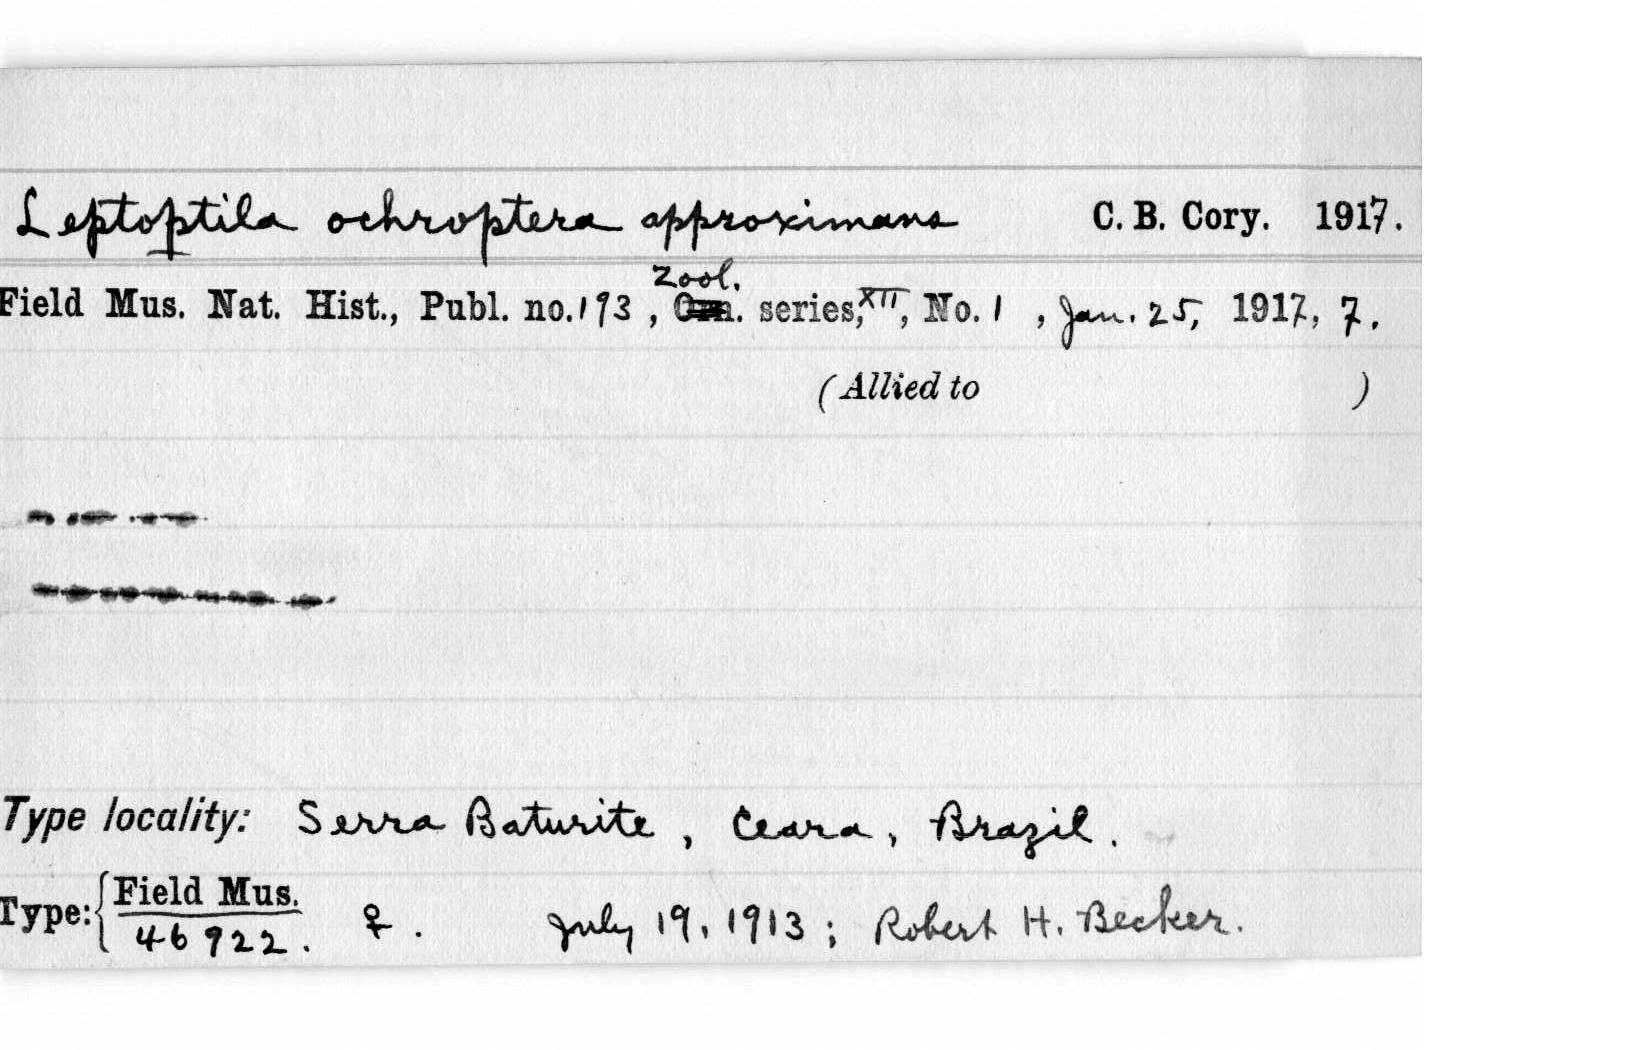 Leptoptila ochroptera approximans C. B. Cory. 1917.
Zool.
Field Mus. Nat. Hist., Publ. no. 193, Orn. series, XII, No. 1, Jan. 25, 1917, 7.
(Allied to )
Type locality: Serra Baturite, Ceara, Brazil.
Type: Field Mus. 46922. ♀. July 19, 1913; Robert H. Becker.